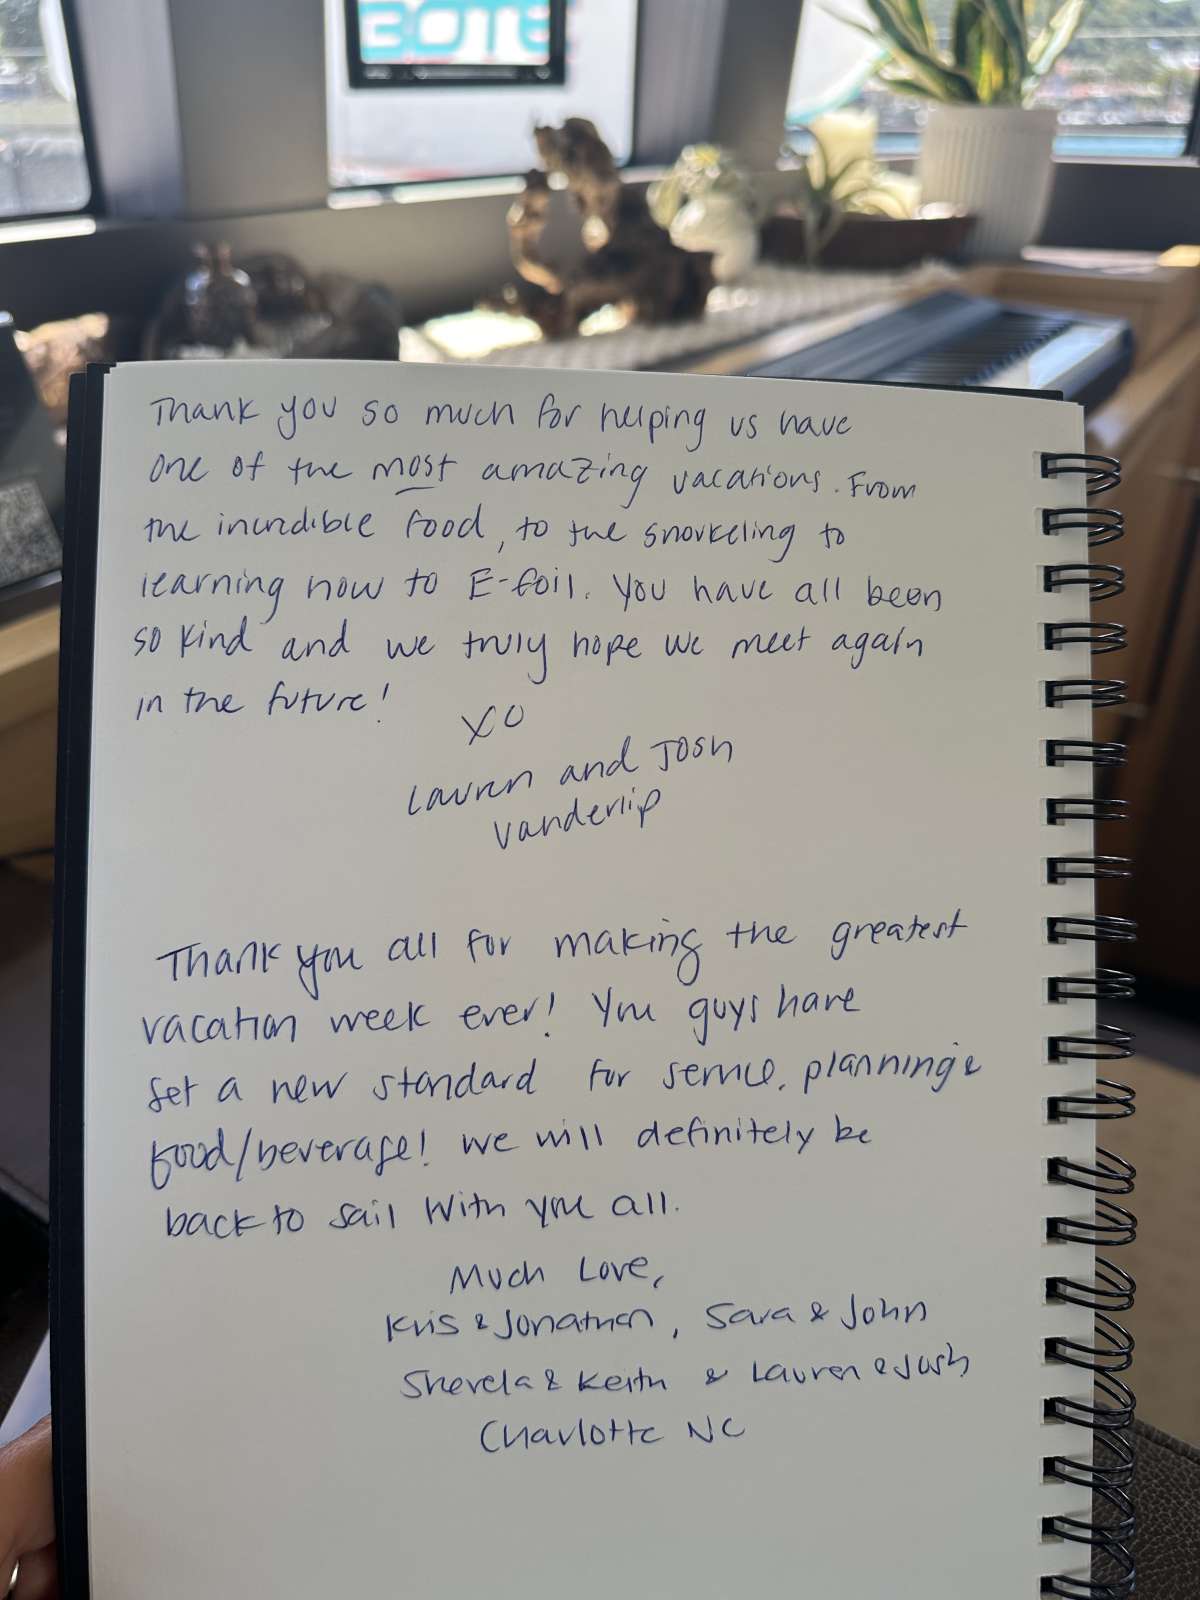 BOTE
Thank you so much for helping us have
one of the most amazing vacations. From
the incredible food, to the snorkeling to
learning how to E-foil. You have all been
so kind and we truly hope we meet again
in the future!
XO
Lauren and Josh
Vanderlip
Thank you all for making the greatest
vacation week ever! You guys have
set a new standard for service, planning &
food/beverage! We will definitely be
back to sail with you all.
Much Love,
Kris & Jonathan, Sara & John
& Keith & Lauren & Josh
Charlotte NC